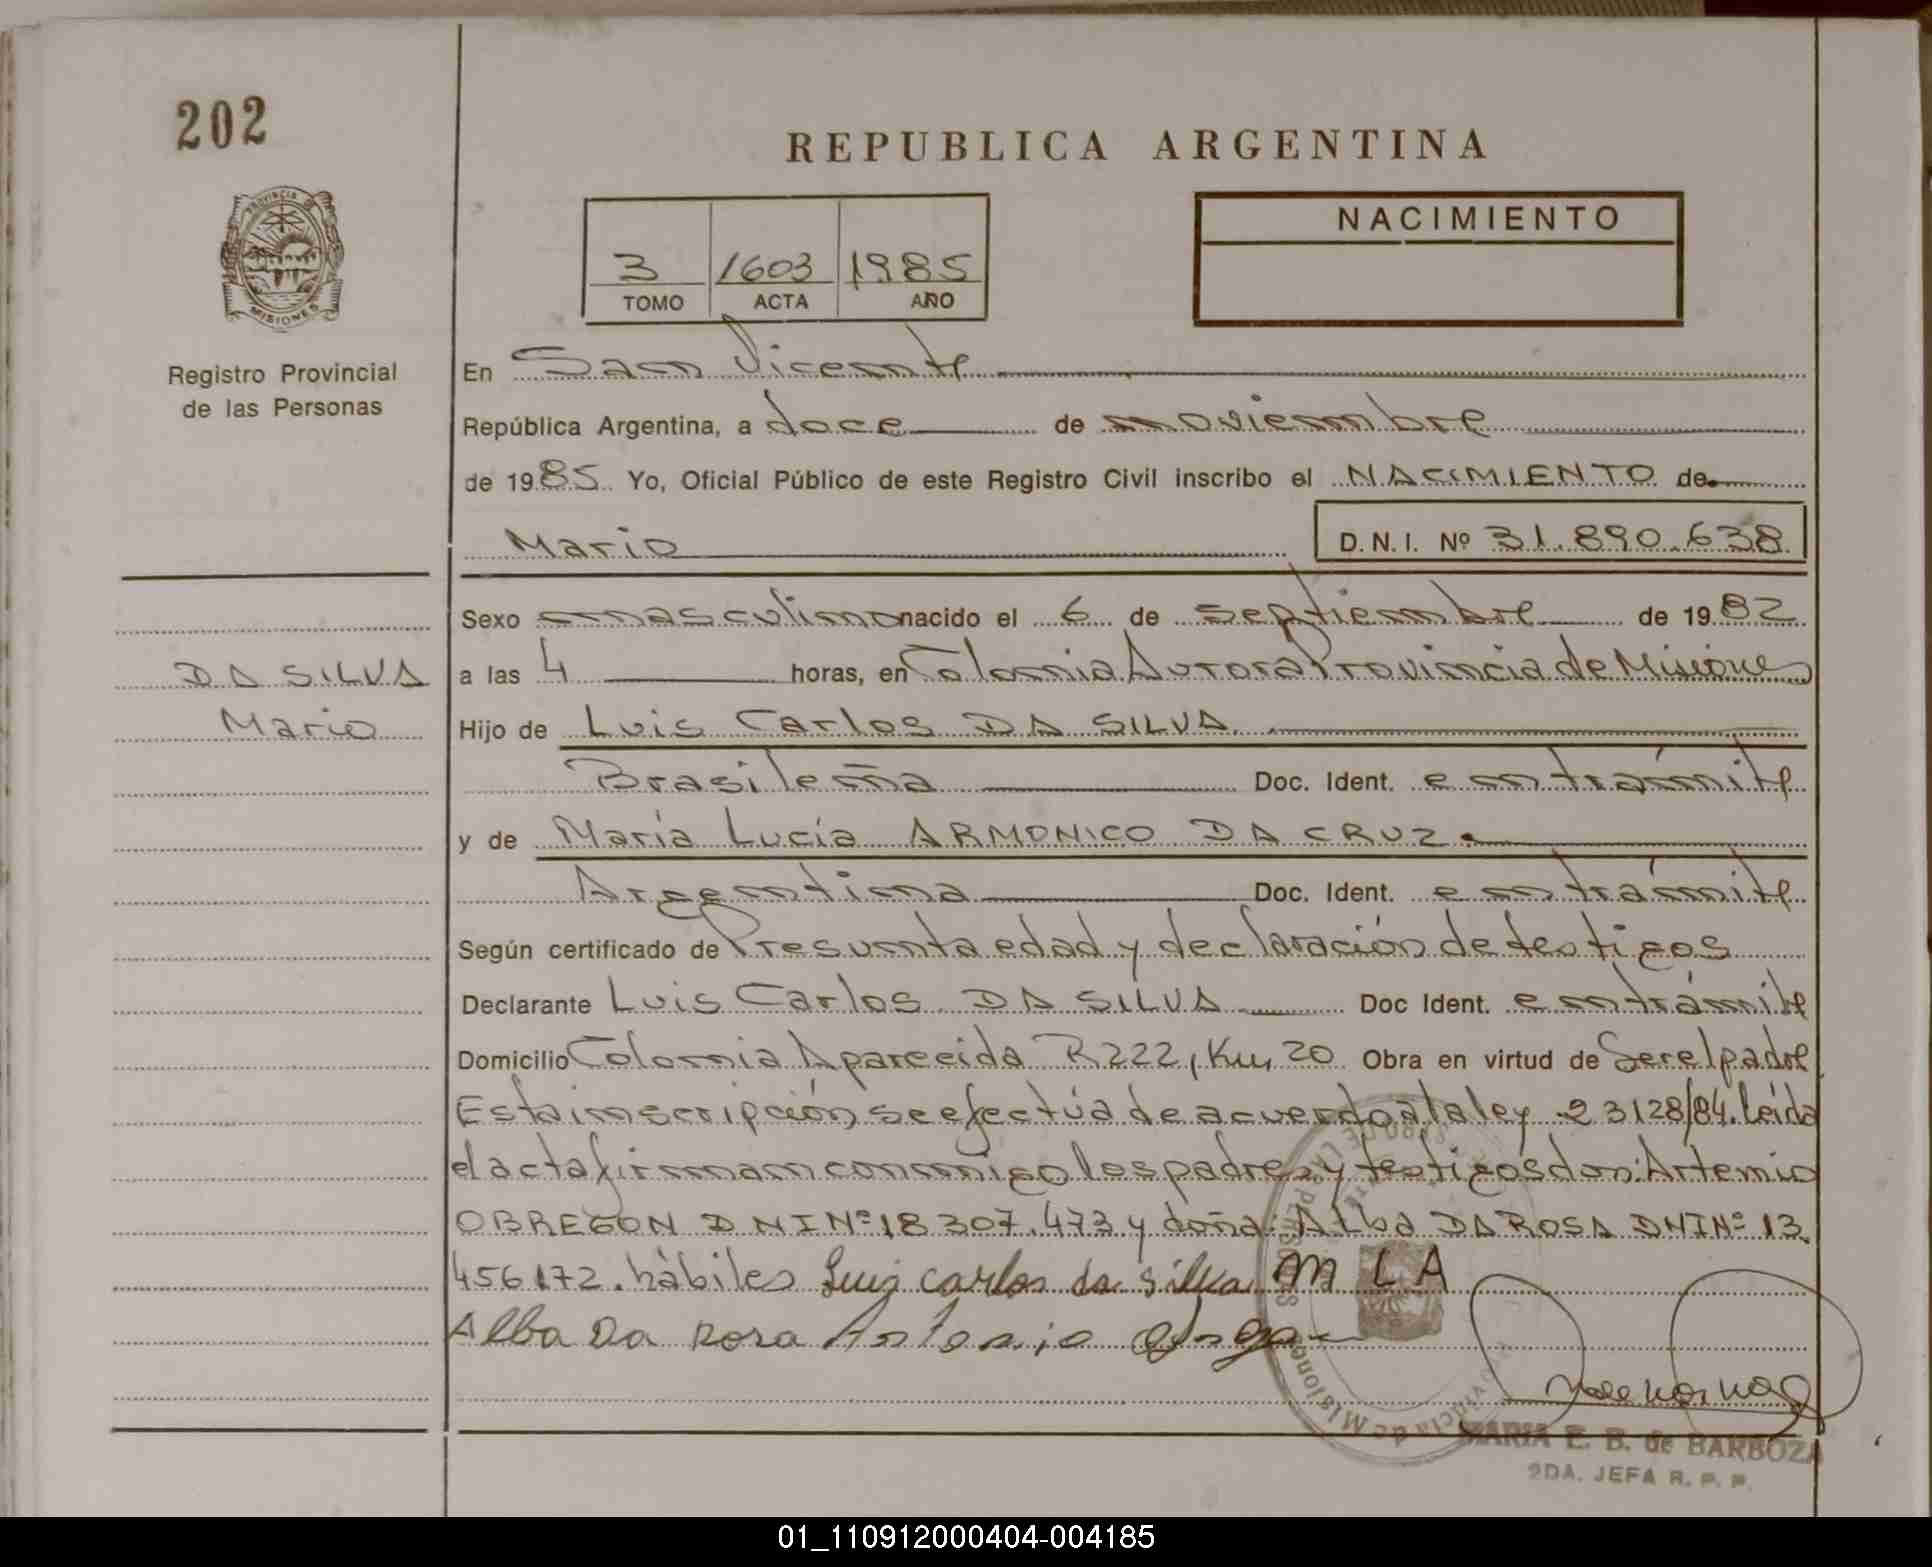 202
REPUBLICA ARGENTINA
PROVINCIA DE
MISIONES
Registro Provincial
de las Personas
3 1603 1985
TOMO ACTA AÑO
NACIMIENTO
En San Vicente
República Argentina, a doce de noviembre
de 1985 Yo, Oficial Público de este Registro Civil inscribo el NACIMIENTO de
Mario D.N.I. Nº 31.890.638
Sexo masculino nacido el 6 de septiembre de 1982
DA SILVA
Mario
a las 4 horas, en Colonia Aurora Provincia de Misiones
Hijo de Luis Carlos DA SILVA
Brasileña Doc. Ident. en trámite
y de María Lucía ARMONICO DA CRUZ.
Argentina Doc. Ident. en trámite
Según certificado de Presunta edad y declaración de testigos
Declarante Luis Carlos DA SILVA Doc Ident. en trámite
Domicilio Colonia Aparecida R222, Km, 20 Obra en virtud de Ser el padre
Esta inscripción se efectúa de acuerdo a la ley 23128/84. Leída
el acta firman conmigo los padres y testigos don: Artemio
OBREGON DNI Nº 18 307.473 y doña: Alba DA ROSA DNI Nº 13.
456172. hábiles Luis carlos da silva M L A
Alba Da Rosa
Provincia de Misiones
MARIA E. B. de BARBOZA
2DA. JEFA R. P. P.
01_110912000404-004185